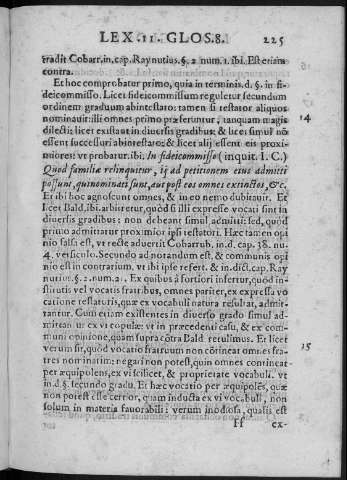 LEX. 11. GLOS. 8. 225
tradit Cobarr. in. cap. Raynutius. §. 2. num. 1. ibi. Est etiam
contra.
Et hoc comprobatur primo, quia in terminis. d. §. in fi-
deicommisso. Licet fideicommissum reguletur secundum
ordinem graduum abintestato: tamen si testator aliquos
nominauit: illi omnes primo præferuntur, tanquam magis 14
dilecti: licet existant in diuersis gradibus: & licet simul nō
essent successuri abintestato: & licet alij essent eis proxi-
miores: vt probatur. ibi. In fideicommisso (inquit. I. C.)
Quod familiæ relinquitur, ij ad petitionem eius admitti
possunt, qui nominati sunt, aut post eos omnes extinctos, &c.
Et ibi hoc agnoscunt omnes, & in eo nemo dubitauit. Et
licet Bald. ibi. arbitretur, quòd si illi expresse vocati sint in
diuersis gradibus: non debeant simul admitti: sed, quòd
primo admittatur proximior ipsi testatori. Hæc tamen opi
nio falsa est, vt recte aduertit Cobarrub. in. d. cap. 38. nu-
4. versiculo. Secundo ad notandum est, & communis opi
nio est in contrarium. vt ibi ipse refert. & in. dict. cap. Ray
nutius. §. 2. num. 2. Ex quibus à fortiori infertur, quòd in-
stitutis vel vocatis fratribus, omnes pariter, ex expressa vo
catione testatoris, quæ ex vocabuli natura resultat, admit-
tantur. Cum etiam existentes in diuerso grado simul ad-
mittantur ex vi copulæ: vt in præcedenti casu, & ex com-
muni opinione, quam supra cōtra Bald. retulimus. Et licet
verum sit, quòd vocatio fratruum non cōtineat omnes fra- 15
tres nominatim: negari non potest, quin omnes contineat
per æquipolens, ex vi scilicet, & proprietate vocabuli. vt
in. d. §. secundo gradu. Et hæc vocatio per æquipolēs, quæ
non potest esse cerrior, quam inducta ex vi vocabuli, non
solum in materia fauorabili: verum inodiosa, qualis est
Ff ex-